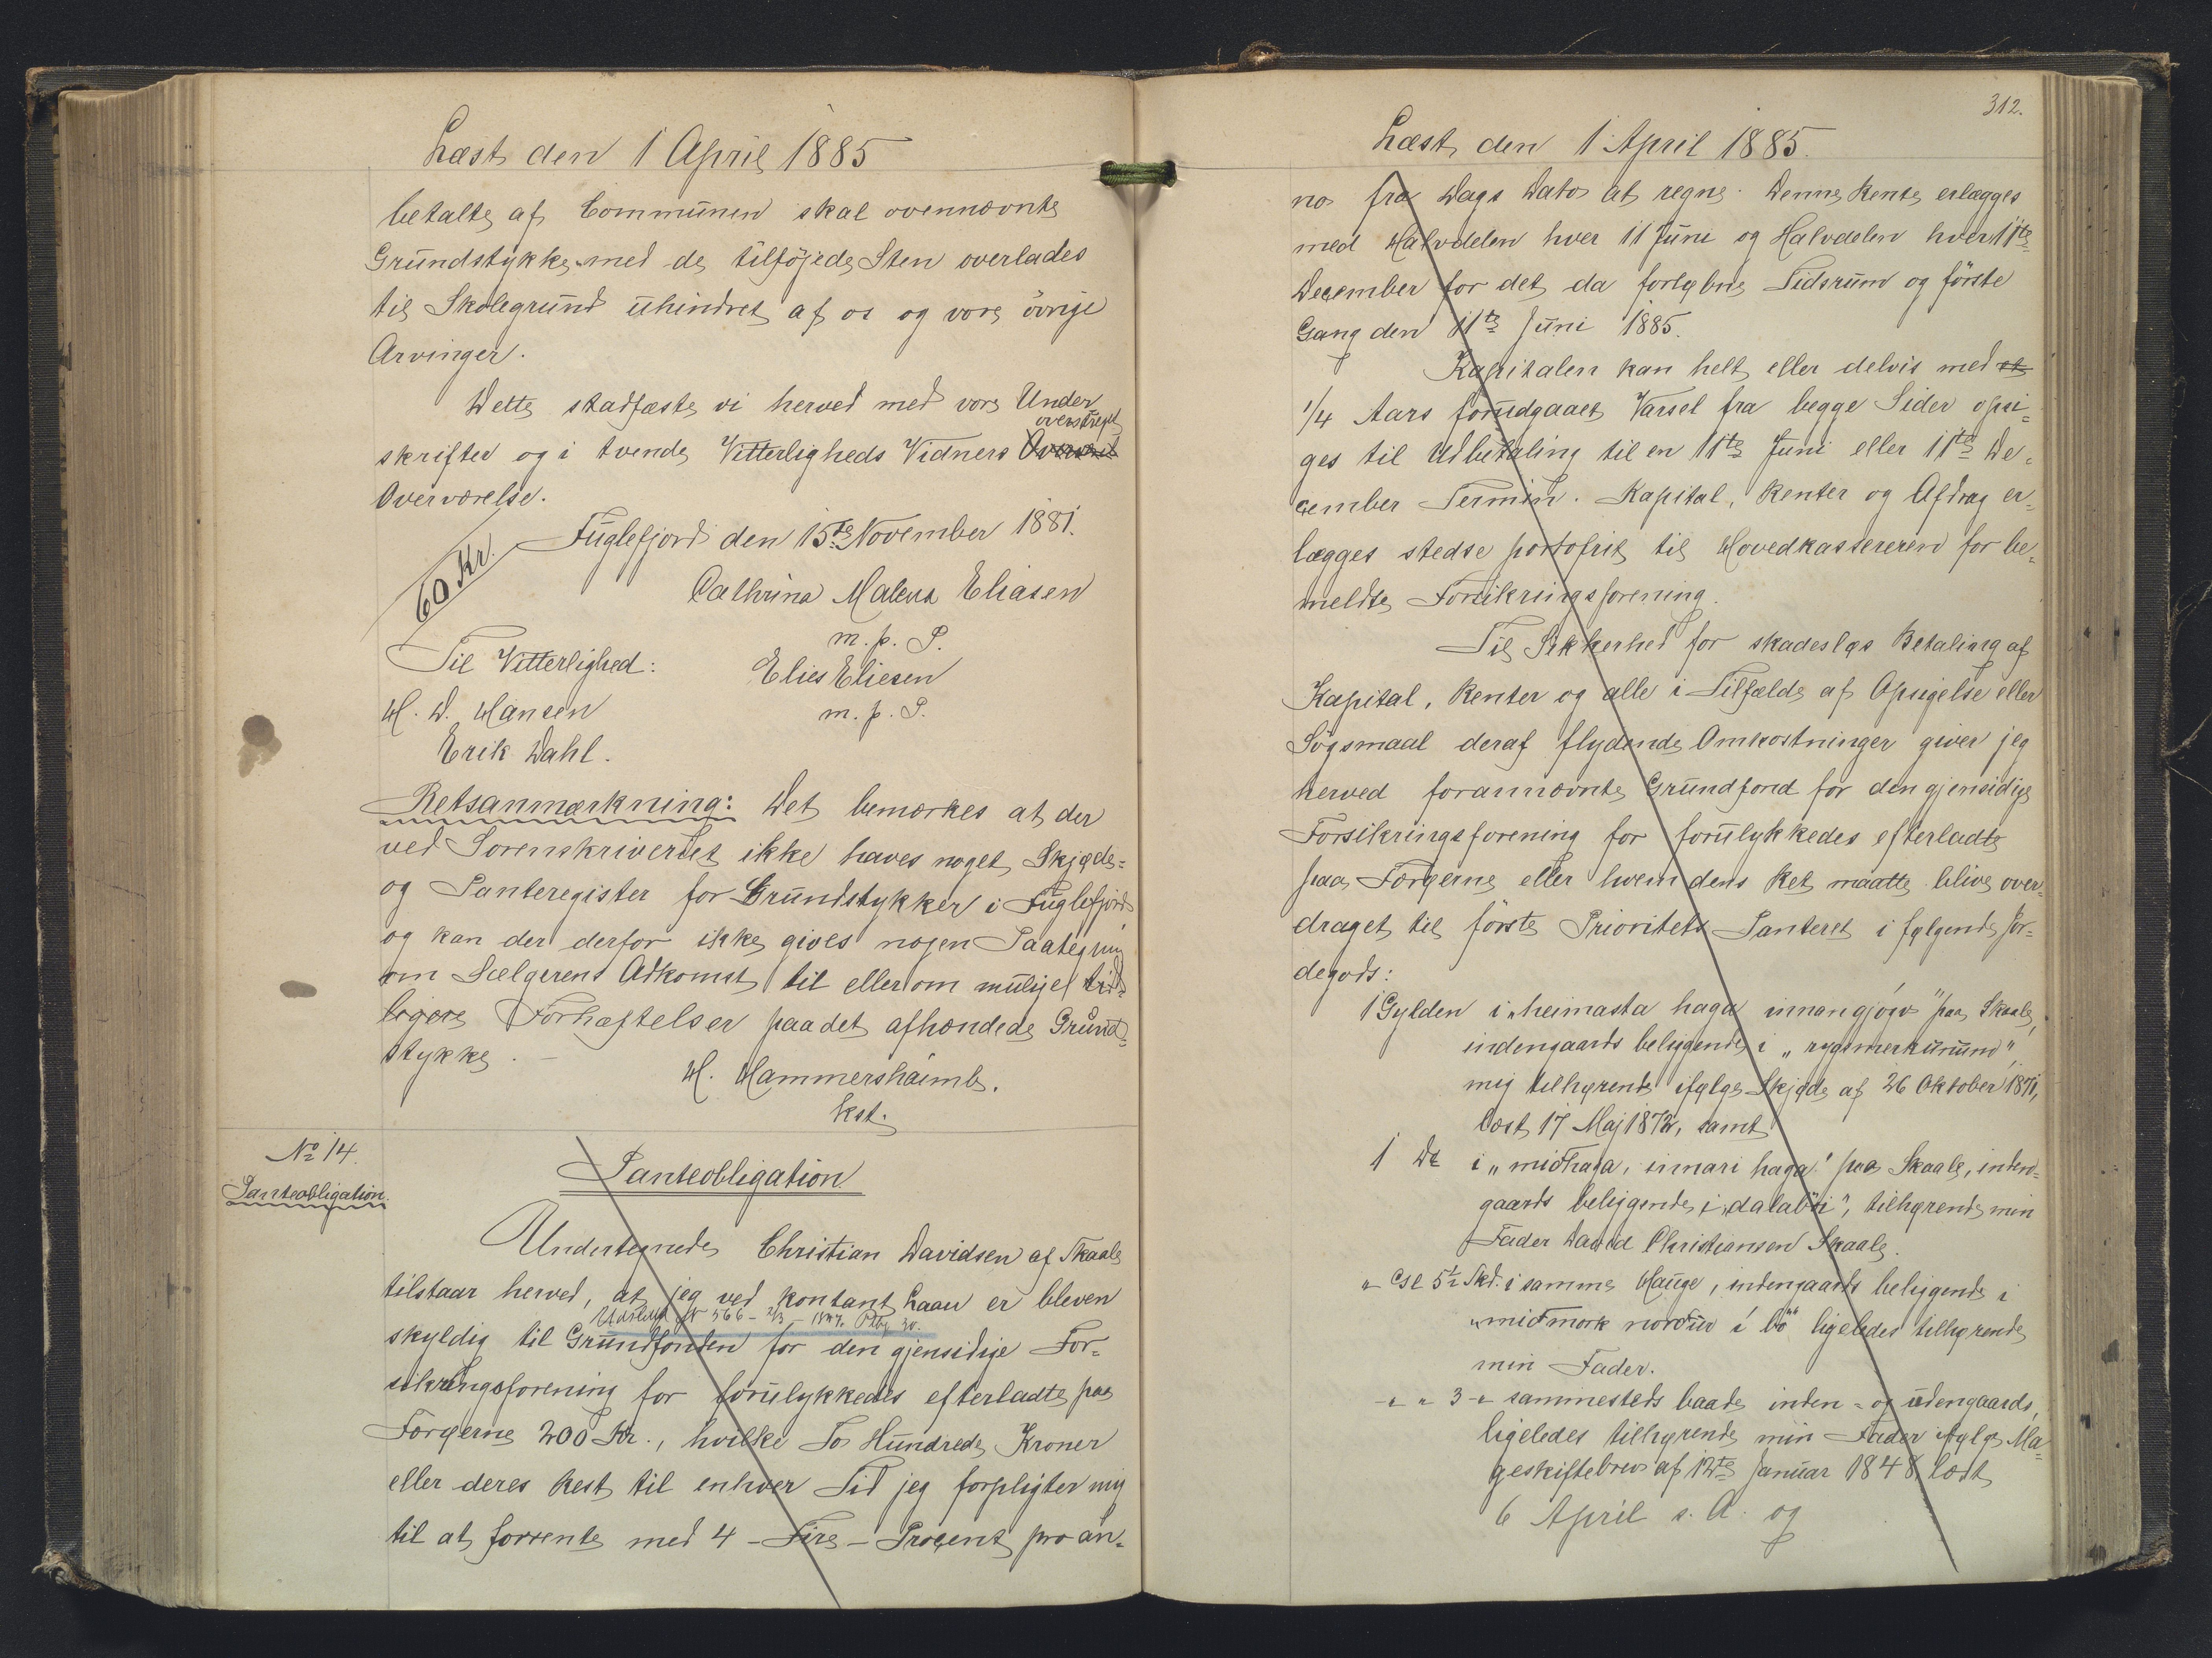 Læst den 1 April 1885
betalte af Communen skal ovennævnte
Grundstykke med de tilföjede Sten overlades
til Skolegrund uhindret af os og vore övrige
Arvinger.
Dette stadfæste vi herved med vore Under
overstreget
skrifter og i tvende Vitterligheds Vidners
Overværelse.
60 Kr.
Fuglefjord den 15de November 1881.
Cathrina Malena Eliasen
m. p. P.
Til Vitterlighed:
Elies Eliesen
H. D. Hansen
m. p. P.
Erik Dahl.
Retsanmærkning: Det bemærkes at der
ved Sorenskriveriet ikke haves noget Skjøde-
og Panteregister for Grundstykker i Fuglefjord
og kan der derfor ikke gives nogen Paategning
om Sælgerens Adkomst til eller om muligt tid-
ligere Forhæftelser paa det afhændede Grund-
stykke. –
H. Hammershaimb.
kst.
No 14.
Panteobligation.
Panteobligation.
Undertegnede Christian Davidsen af Skaale
tilstaar herved, at jeg ved kontant Laan er bleven
Udslettet No 566 - 2/3 -
skyldig til Grundfonden for den gjensidige For-
sikringsforening for forulykkedes efterladte paa
Færøerne 200 Kr., hvilke To Hundrede Kroner
eller deres Rest til enhver Tid jeg forpligter mig
til at forrente med 4 - Fire - Procent pro an-
312.
Læst den 1 April 1885.
no fra Dags Dato at regne. Denne Rente erlægges
med Halvdelen hver 11 Juni og Halvdelen hver 11te
December for det da forløbne Tidsrum og förste
Gang den 11te Juni 1885.
Kapitalen kan helt eller delvis med et
1/4 Aars forudgaaet Varsel fra begge Sider opsi-
ges til Udbetaling til en 11te Juni eller 11te De-
cember Termin. Kapital, Renter og Afdrag er-
lægges stedse portofrit til Hovedkassereren for be-
meldte Forsikringsforening.
Til Sikkerhed for skadesløs Betaling af
Kapital, Renter og alle i Tilfælde af Opsigelse eller
Søgsmaal deraf flydende Omkostninger giver jeg
herved forannævnte Grundfond for den gjensidige
Forsikringsforening for forulykkedes efterladte
paa Færøerne eller hvem dens Ret maatte blive over-
draget til förste Prioritets Panteret i følgende Jor-
degods:
1 Gylden i „heimasta haga innangjógv" paa Skaale,
indengaards beliggende i „rygsmerkununs",
mig tilhørende ifølge Skjøde af 26 Oktober 1871,
læst 17 Maj 1872, samt
1 Do i „miðhaga, innari haga" paa Skaale, inden-
gaards beliggende i „dalabøi", tilhørende min
Fader David Christiansen Skaale.
" Gl 5½ Skd. i samme Hauge, indengaards beliggende i
„miðmork norður í bö" ligeledes tilhørende
min Fader.
- " " 3 - " sammesteds baade inden- og udengaards,
ligeledes tilhørende min Fader ifølge Ma-
geskiftebrev af 12te Januar 1848, læst
6 April s. A. og